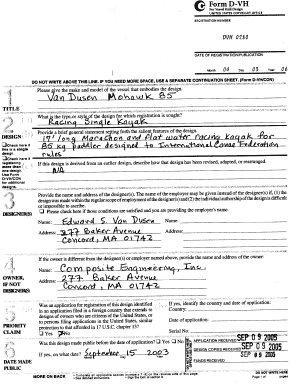 Form D-VH
For Vessel Hull Design
UNITED STATES COPYRIGHT OFFICE
REGISTRATION NUMBER
DATE OF REGISTRATION/PUBLICATION
Month Day Year
DO NOT WRITE ABOVE THIS LINE. IF YOU NEED MORE SPACE, USE A SEPARATE CONTINUATION SHEET. (Form D-VH/CON)
1
TITLE
Please give the make and model of the vessel that embodies the design.
Van Dusen Mohawk 85
2
DESIGN
What is the type or style of the design for which registration is sought?
Racing Single Kayak
Provide a brief general statement setting forth the salient features of the design.
17' long Marathon and flat water racing kayak for
85 kg paddler designed to International Canoe Federation
rules
If this design is derived from an earlier design, describe how that design has been revised, adapted, or rearranged.
NA
3
DESIGNER(S)
Provide the name and address of the designer(s). The name of the employer may be given instead of the designer(s) if, (1) the
designs was made within the regular scope of employment of the designer(s) and (2) the individual authorship of the design is difficult
or impossible to ascribe.
Please check here if those conditions are satisfied and you are providing the employer's name.
Name: Edward S. Van Dusen
Address: 277 Baker Avenue
Concord, MA 01742
Name:
Address:
4
OWNER,
IF NOT
DESIGNERS
If the owner is different from the designer(s) or employer named above, provide the name and address of the owner.
Name: Composite Engineering, Inc.
Address: 277 Baker Avenue
Concord, MA 01742
5
PRIORITY
CLAIM
Was an application for registration of this design identified
in an application filed in a foreign country that extends to
designs of owners who are citizens of the United States, or
to persons filing applications in the United States, similar
protection to that afforded in 17 U.S.C. chapter 13?
Yes No
If yes, identify the country and date of application:
Country:
Date of application:
Serial No:
6
DATE MADE
PUBLIC
Was this design made public before the date of application? Yes No
If yes, on what date? September 15 2003
APPLICATION RECEIVED SEP 09 2005
DESIGN COPIES RECEIVED
FUNDS RECEIVED
SEP 09 2005
MORE ON BACK